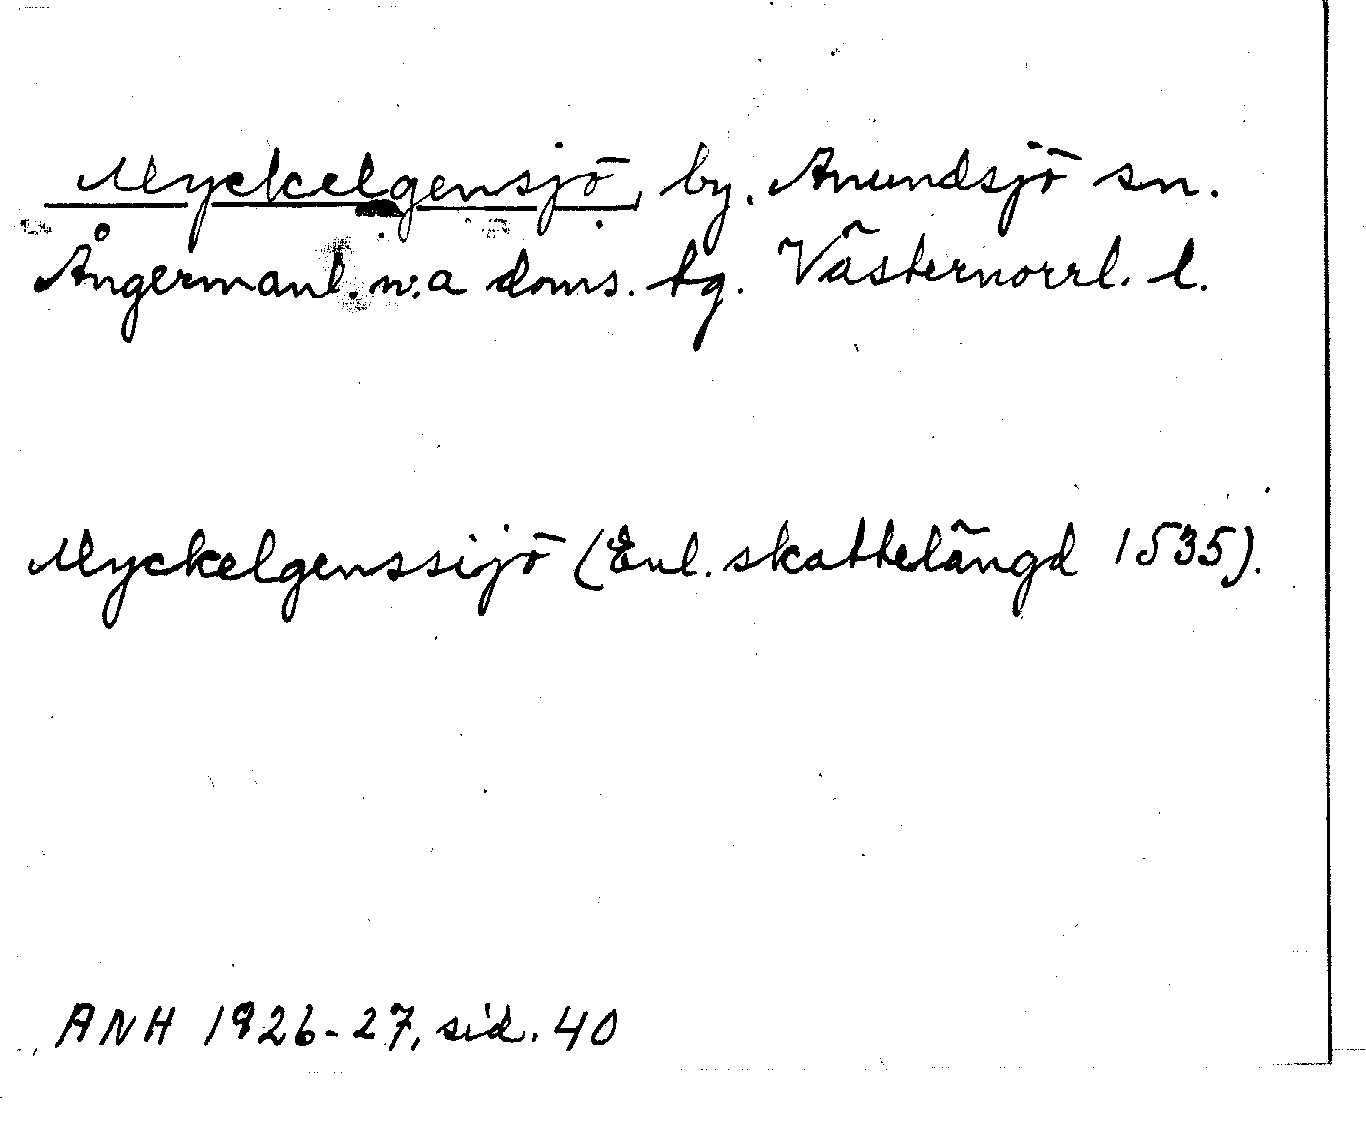 Myckelgensjö, by. Anundsjö sn.
Ångermanl. n:a doms. tg. Västernorrl. l.
Myckelgenssijö (Enl. skattelängd 1535).
ANH 1926-27, sid. 40